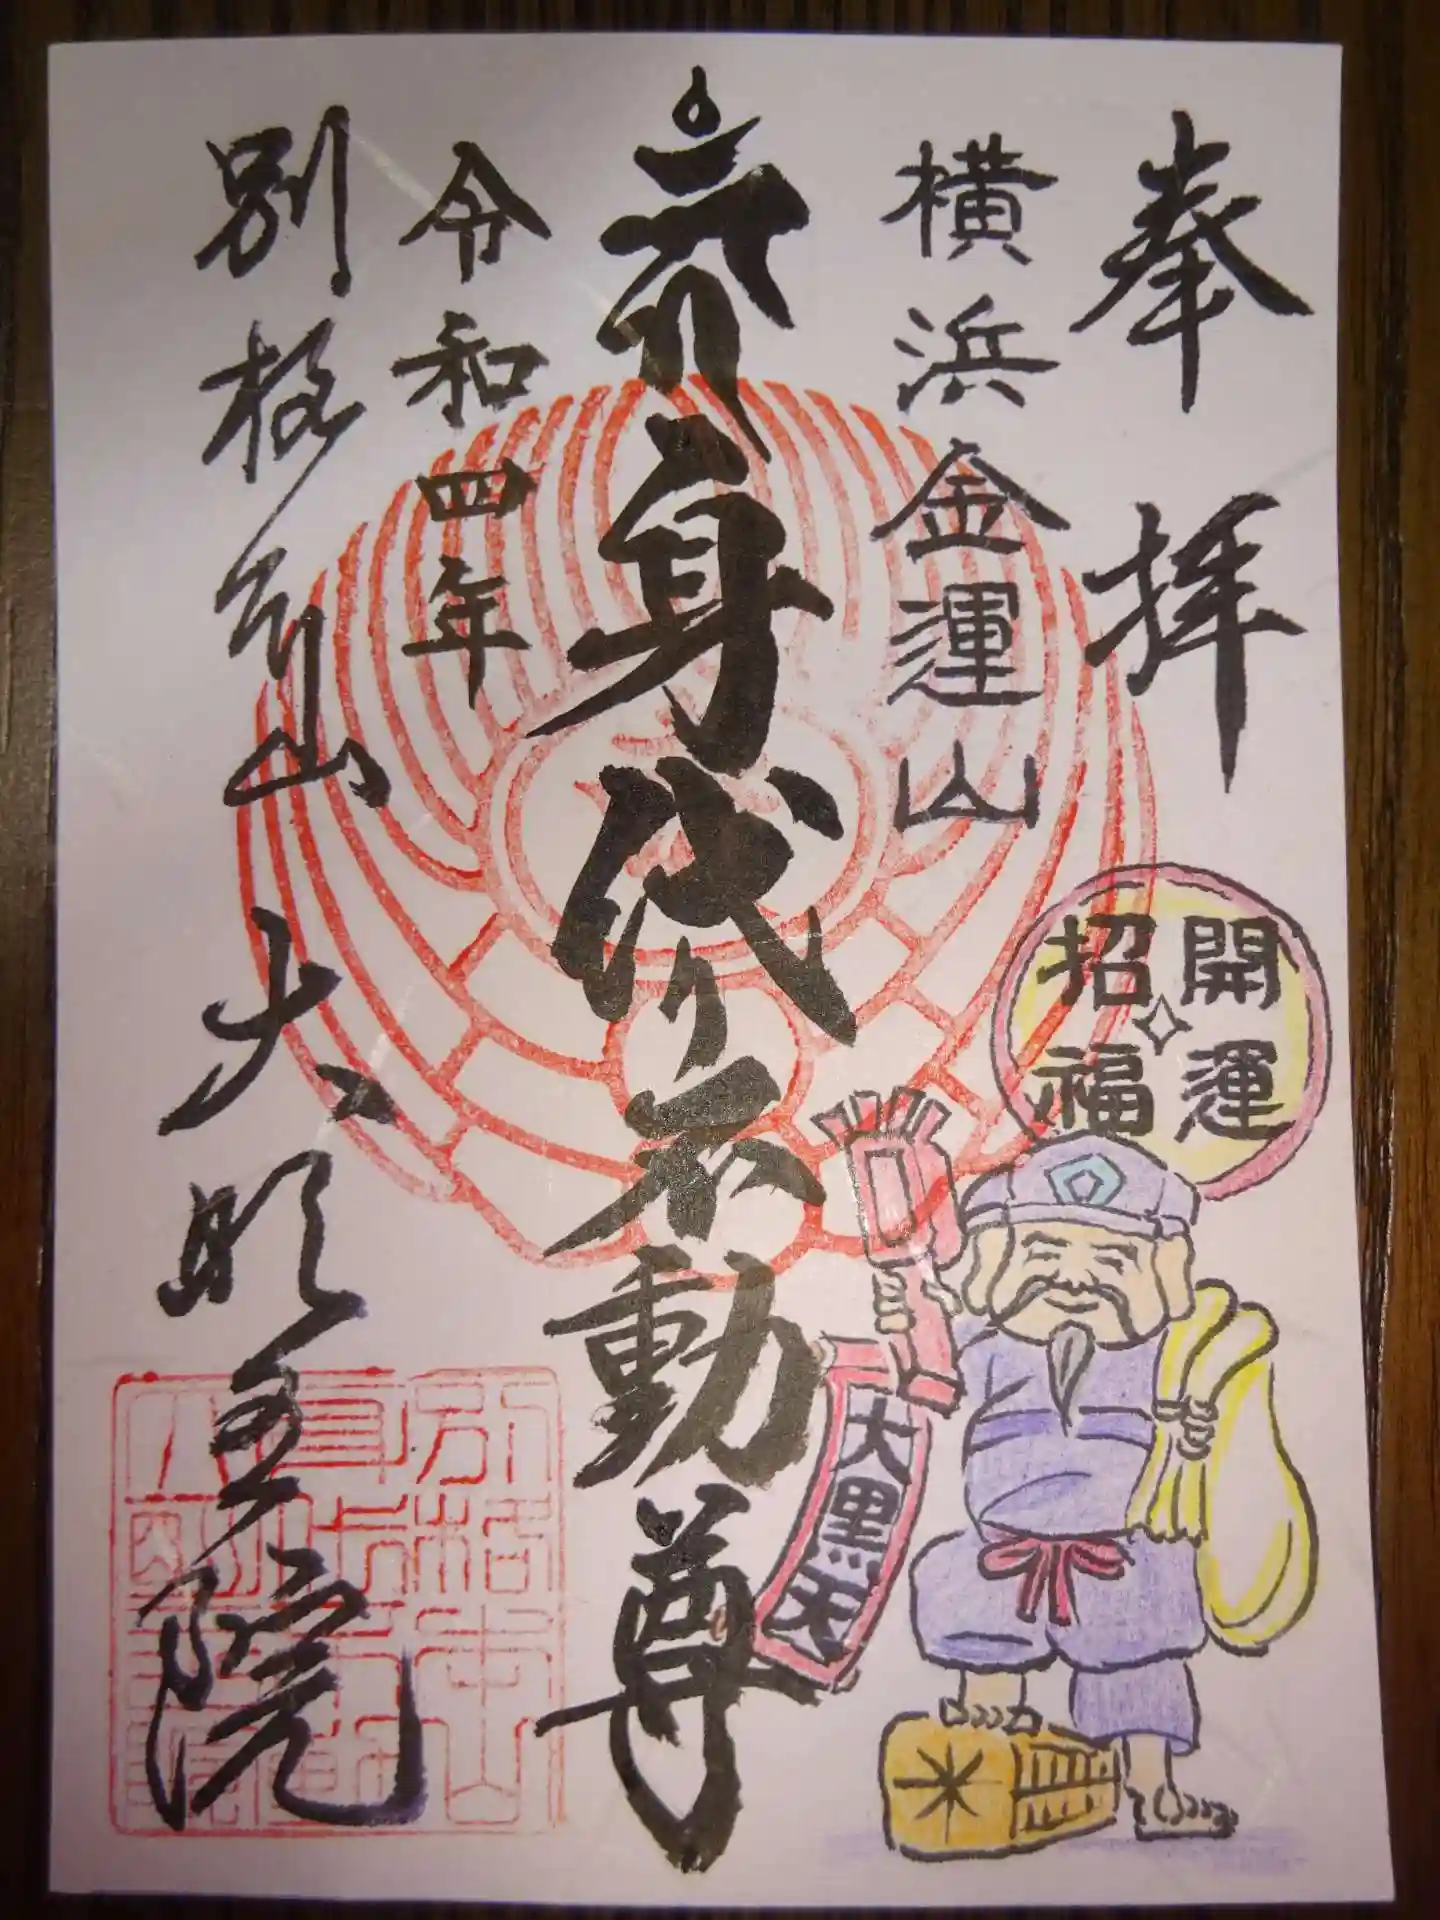 奉拝
横浜金運山
開運
招福
大黒天
身代不動尊
令和四年
別格本山大明王院